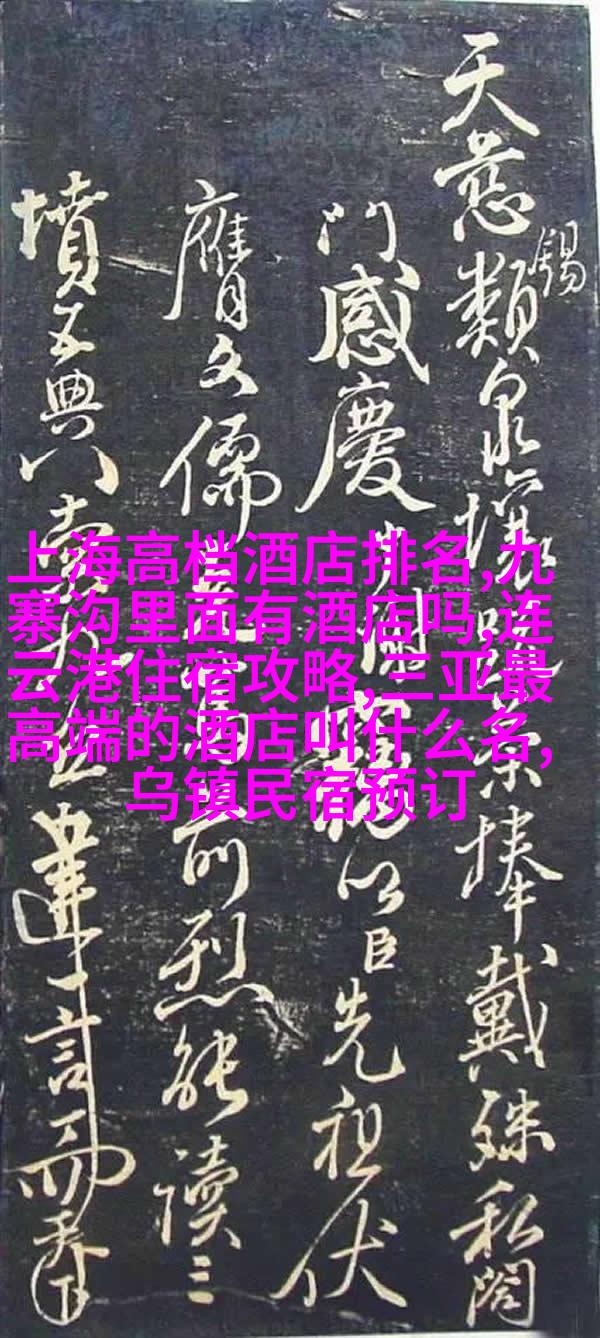 天慈類泉壤榮捧戴殊私闔
錫
門感慶以臣先祖伏
膺文儒前烈能讀三
墳五典八索九丘達言
上海高档酒店排名,九
寨沟里面有酒店吗,连
云港住宿攻略,三亚最
高端的酒店叫什么名,
乌镇民宿预订